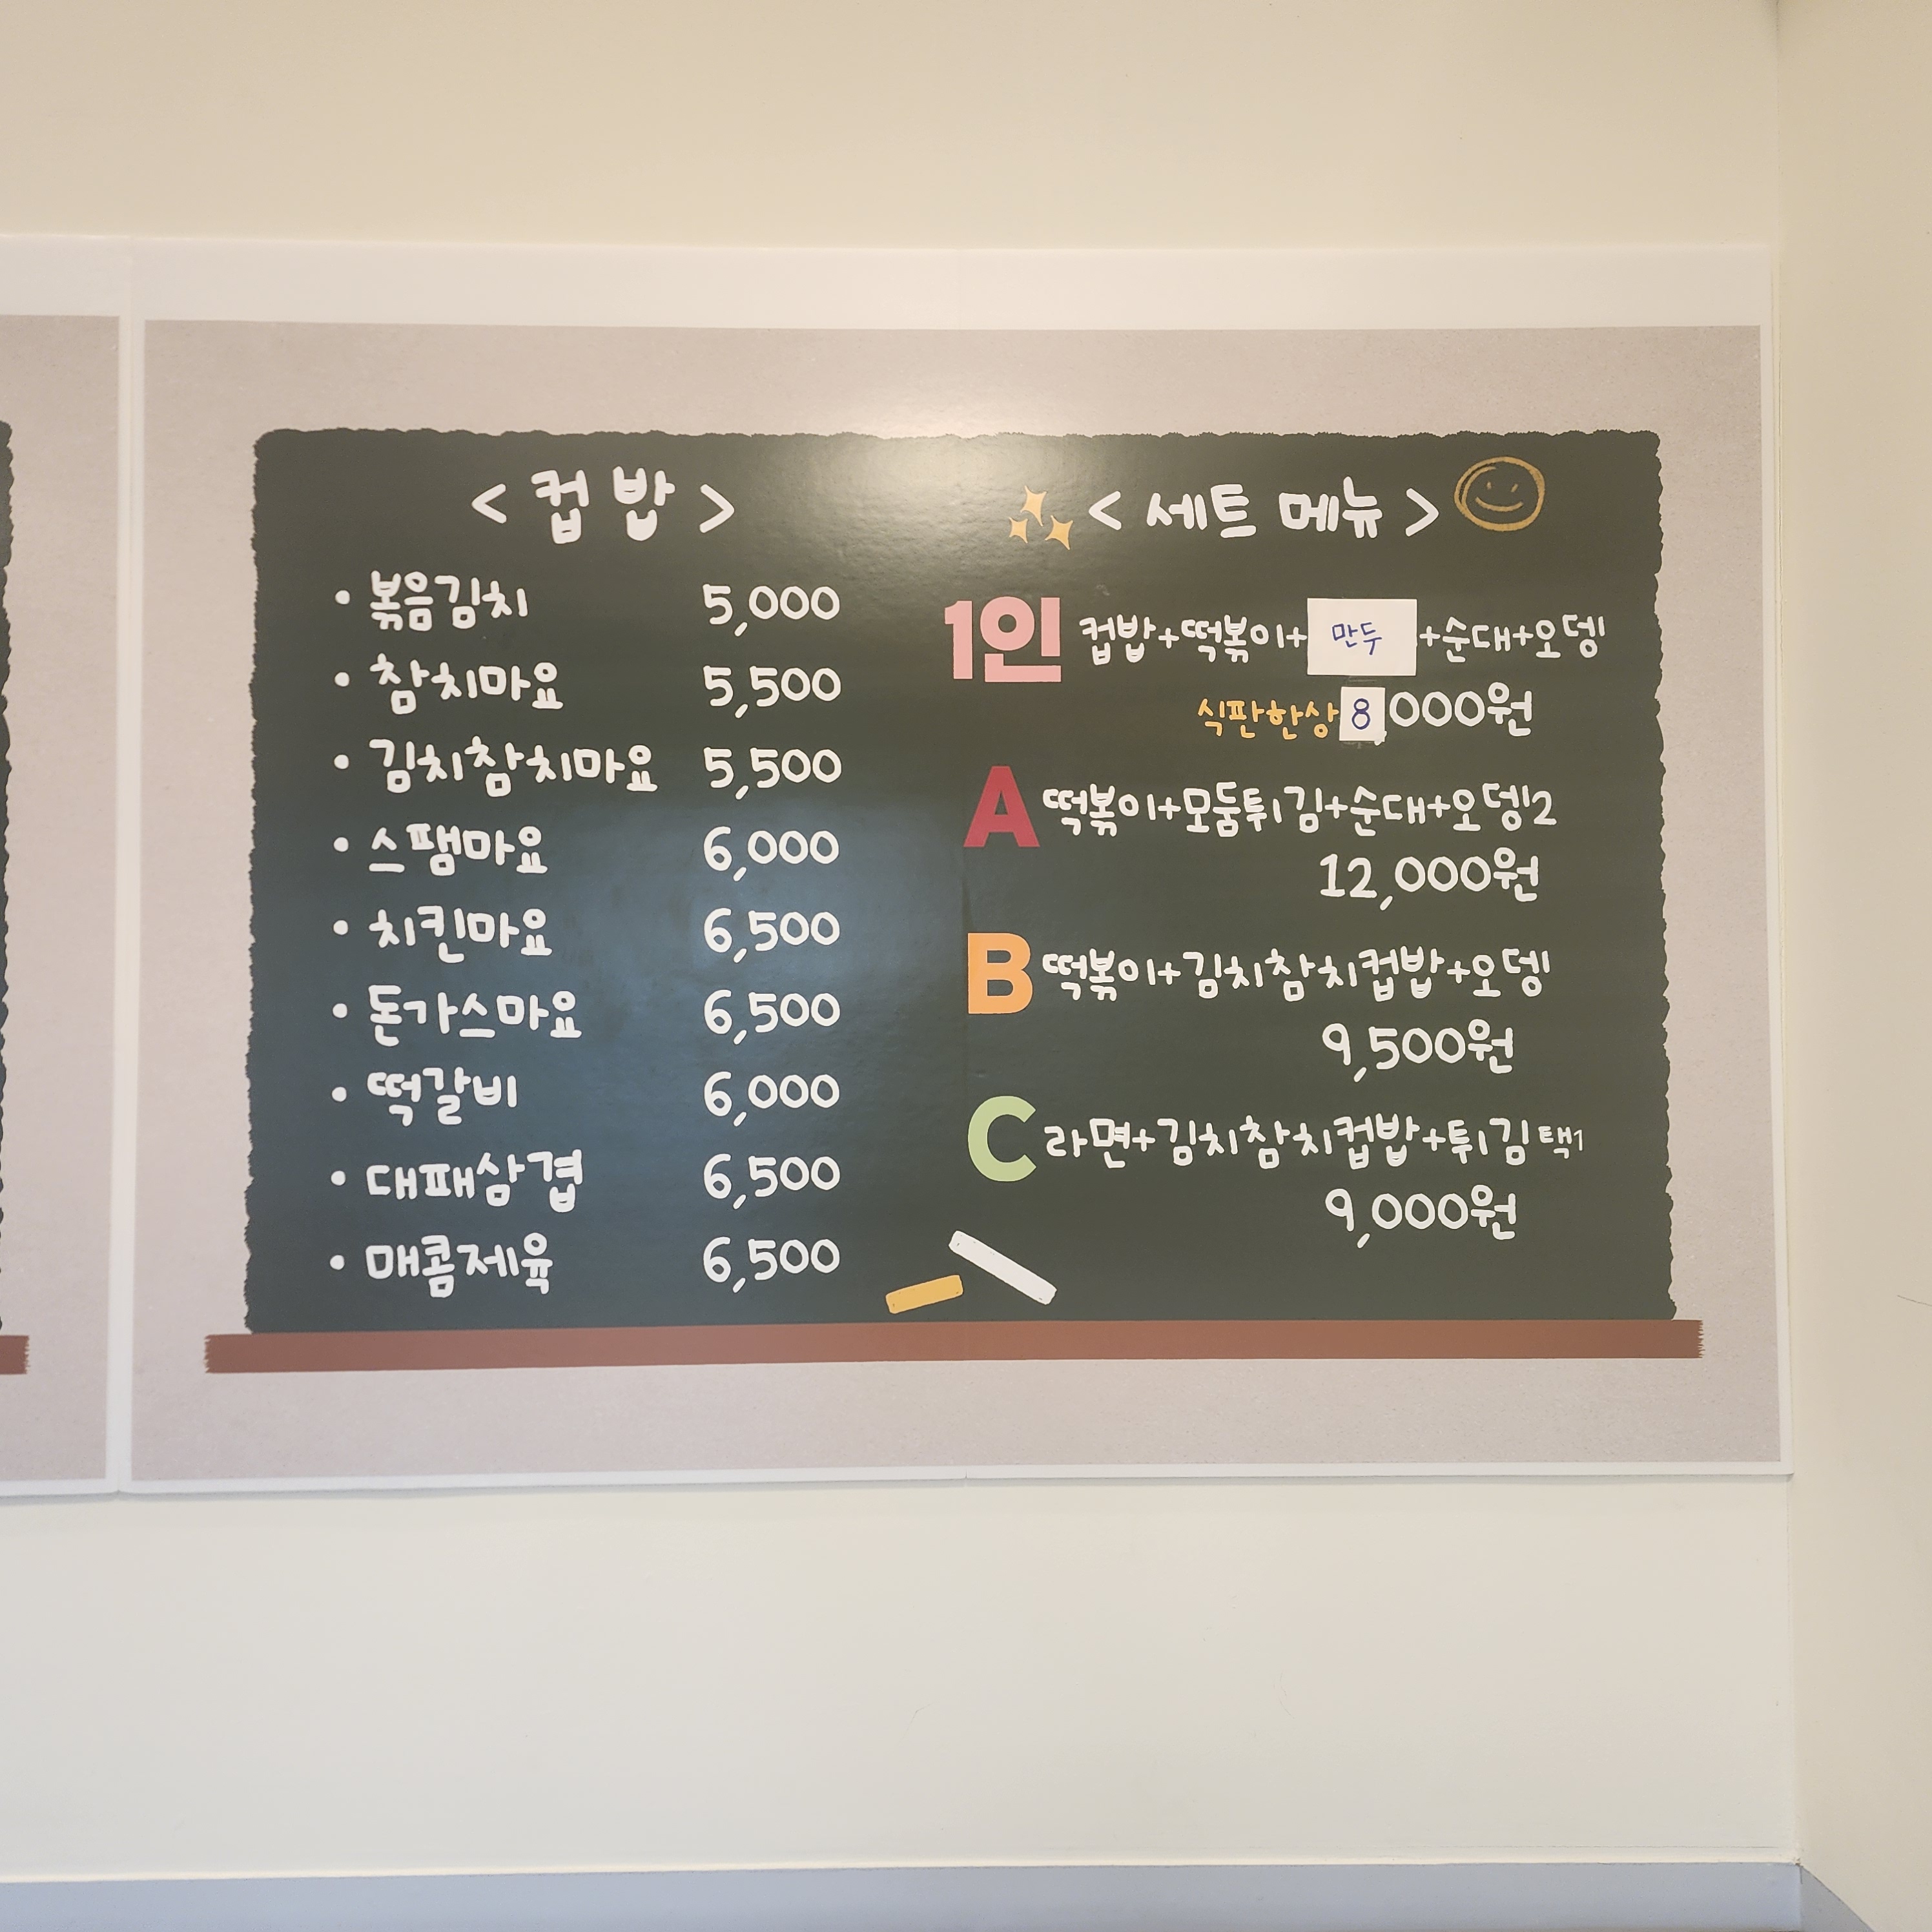 < 컵 밥 >
• 볶음김치 5,000
• 참치마요 5,500
• 김치참치마요 5,500
• 스팸마요 6,000
• 치킨마요 6,500
• 돈가스마요 6,500
• 떡갈비 6,000
• 대패삼겹 6,500
• 매콤제육 6,500
< 세트 메뉴 >
1인 컵밥+떡볶이+만두+순대+오뎅1
식판한상 8,000원
A 떡볶이+모둠튀김+순대+오뎅2
12,000원
B 떡볶이+김치참치컵밥+오뎅1
9,500원
C 라면+김치참치컵밥+튀김택1
9,000원